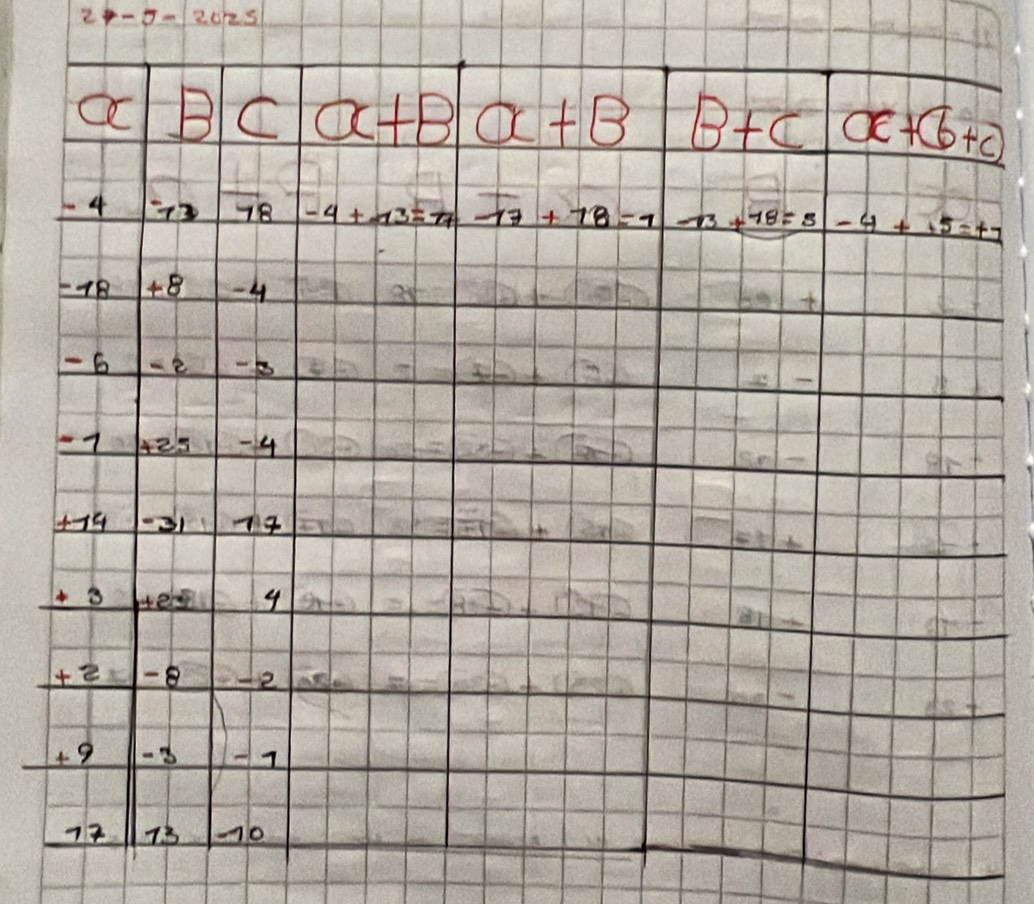 27-5-2025
a B C a+B a+B B+C a+(b+c)
-4 -13 18 -4+-13=17 -17+18=1 -13+18=5 -4++5=+1
-18 +8 -4
-6 -2 -3
-1 +25 -4
+14 -31 17
+3 4
+2 -8 -2
+9 -3 -1
17 13 -10